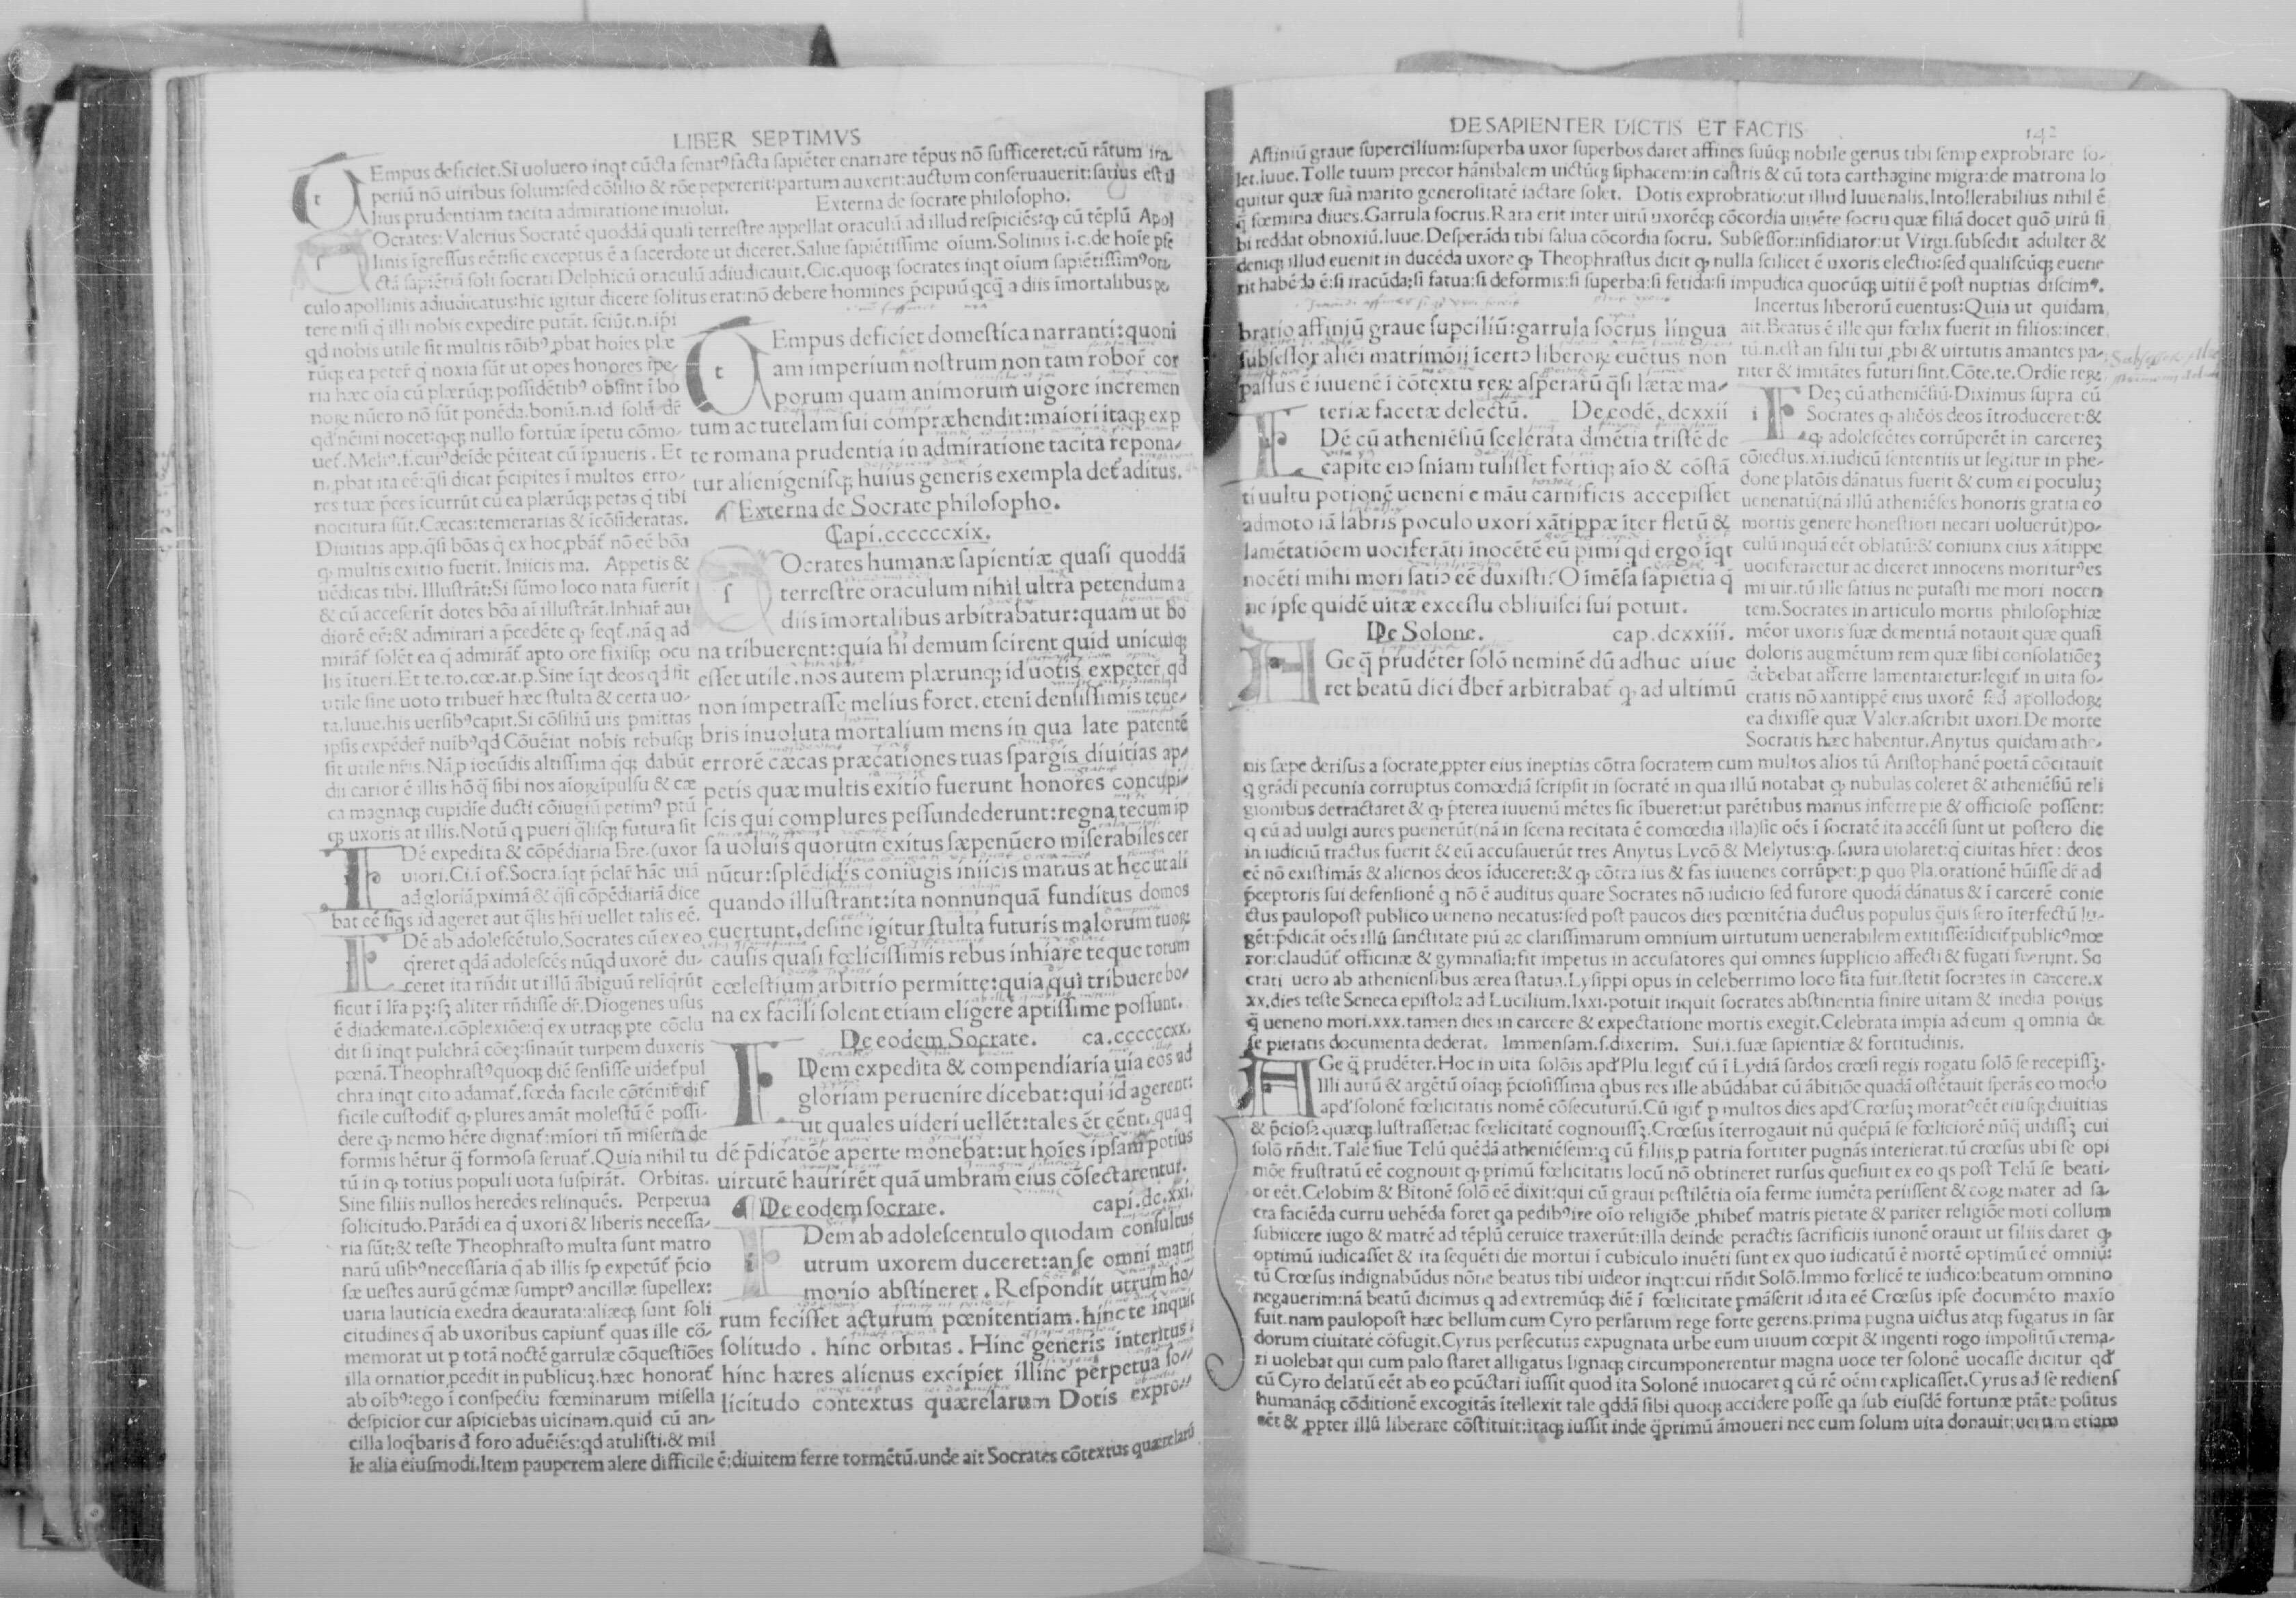 LIBER SEPTIMVS
Empus deficiet. Si uoluero inqt cũcta senatꝰ facta sapiẽter enarrare tẽpus nõ sufficeret: cũ rãtum im
periũ nõ uiribus solum: sed cõsilio & rõe pepererit: partum auxerit: auctum conseruauerit: satius est il
lius prudentiam tacita admiratione inuolui. Externa de socrate philosopho.
Ocrates: Valerius Socratẽ quoddã quasi terrestre appellat oraculũ ad illud respiciẽs: ꝙ cũ tẽplũ Apol
linis ĩgressus eẽt: sic exceptus ẽ a sacerdote ut diceret. Salue sapiẽtissime oium. Solinus i. c. de hoie pse
ctã sapiẽtiã soli socrati Delphicũ oraculũ adiudicauit. Cic. quoqꝫ socrates inqt oium sapiẽtissimꝰ ora
culo apollinis adiudicatus: hic igitur dicere solitus erat: nõ debere homines p̃cipuũ qcq̃ a diis ĩmortalibus pe
tere nisi q̃ illi nobis expedire putãt. sciũt. n. ip̃i
qd nobis utile sit multis rõibꝰ ꝓbat hoies plæ
rũqꝫ ea peter̃ q̃ noxia sũt ut opes honores ĩpe
ria hæc oia cũ plærũqꝫ possidẽtibꝰ obsint ĩ bo
noꝝ nũero nõ sũt ponẽda. bonũ. n. id solũ dr̃
qd nẽini nocet: qqꝫ nullo fortũæ ĩpetu cõmo-
uet̃. Meliꝰ. s. cuiꝰ deĩde pẽiteat cũ ĩpaueris. Et
n. ꝓbat ita eẽ: q̃si dicat p̃cipites ĩ multos erro-
res tuæ p̃ces ĩcurrũt cũ ea plærũqꝫ petas q̃ tibi
nocitura sũt. Cæcas: temerarias & ĩcõsideratas.
Diuitias app. q̃si bõas q̃ ex hoc ꝓbãt̃ nõ eẽ bõa
ꝙ multis exitio fuerit. Iniicis ma. Appetis &
uẽdicas tibi. Illustrãt: Si sũmo loco nata fuerit
& cũ acceserit dotes bõa ai illustrãt. Inhiar̃ aui
diorẽ eẽ: & admirari a p̃cedẽte ꝙ seqt̃. nã q ad
mirãt̃ solẽt ea q̃ admirãt̃ apto ore fixisqꝫ ocu
lis ĩtueri. Et te. to. cœ. ar. p. Sine ĩqt deos qd sit
utile sine uoto tribuer̃ hæc stulta & certa uo-
ta. Iuue. his uersibꝰ capit. Si cõsiliũ uis ꝑmittas
ipsis expẽder̃ nuĩbꝰ qd Cõuẽiat nobis rebusqꝫ
sit utile nr̃is. Nã ꝓ iocũdis altissima q̃qꝫ dabũt
dii carior ẽ illis hõ q̃ sibi nos aioꝝ ĩpulsu & cæ
ca magnaqꝫ cupidĩe ducti cõiugiũ petimꝰ ptũ
qꝫ uxoris at illis. Notũ q pueri q̃lisqꝫ futura sit
Dẽ expedita & cõpẽdiaria Bre. (uxor
uiori. Ci. ĩ of. Socra. ĩqt p̃clar̃ hãc uiã
ad gloriã ꝓximã & q̃si cõpẽdiariã dice
bat eẽ siqs id ageret aut q̃lis hr̃i uellet talis eẽ.
Dẽ ab adolescẽtulo. Socrates cũ ex eo
q̃reret qdã adolescẽs nũqd uxorẽ du-
ceret ita rñdit ut illũ ãbiguũ relĩqrũt
ficut ĩ lr̃a pꝫ: sꝫ aliter rñdisse dr̃. Diogenes usus
ẽ diademate. i. cõplexiõe: q̃ ex utraqꝫ ꝑte cõclu
dit si inqt pulchrã cõeꝫ: sinaũt turpem duxeris
pœnã. Theophrastꝰ quoqꝫ diẽ sensisse uidet̃ pul
chra inqt cito adamat̃. fœda facile cõtẽnit̃ dif
ficile custodit̃ ꝙ plures amãt molestũ ẽ possi-
dere ꝙ nemo hẽre dignat̃: miori tñ miseria de
formis hẽtur q̃ formosa seruat̃. Quia nihil tu
tũ in ꝙ totius populi uota suspirãt. Orbitas.
Sine filiis nullos heredes relinquẽs. Perpetua
solicitudo. Parãdi ea q̃ uxori & liberis necessa-
ria sũt: & teste Theophrasto multa sunt matro
narũ usibꝰ necessaria q̃ ab illis sp expetũt̃ p̃cio
sæ uestes aurũ gẽmæ sumptꝰ ancillæ supellex:
uaria lauticia exedra deaurata: aliæqꝫ sunt soli
citudines q̃ ab uxoribus capiunt̃ quas ille cõ-
memorat ut p totã noctẽ garrulæ cõquestiões
illa ornatior ꝓcedit in publicuꝫ. hæc honorat̃
ab oibꝰ: ego ĩ conspectu fœminarum misella
despicior cur aspiciebas uicinam. quid cũ an-
cilla loq̃baris đ foro aduẽiẽs: qd atulisti. & mil
le alia eiusmodi. Item pauperem alere difficile ẽ: diuitem ferre tormẽtũ. unde ait Socrates cõtextus quærelarũ
Empus deficiet domestica narranti: quoni
am imperium nostrum non tam robor̃ cor
porum quam animorum uigore incremen
tum ac tutelam sui compræhendit: maiori itaqꝫ ex p
te romana prudentia in admiratione tacita repona-
tur alienigenisqꝫ huius generis exempla det̃ aditus.
¶ Externa de Socrate philosopho.
Capi. ccccccxix.
Ocrates humanæ sapientiæ quasi quoddã
terrestre oraculum nihil ultra petendum a
diis ĩmortalibus arbitrabatur: quam ut bo
na tribuerent: quia hi demum scirent quid unicuiqꝫ
esset utile. nos autem plærunqꝫ id uotis expeter̃ qd
non impetrasse melius foret. eteni densissimis tene-
bris inuoluta mortalium mens in qua late patentẽ
errorẽ cæcas præcationes tuas spargis diuitias ap-
petis quæ multis exitio fuerunt honores concupi-
scis qui complures pessundederunt: regna tecum ip
sa uoluis quorum exitus sæpenũero miserabiles cer
nũtur: splẽdidis coniugis iniicis manus at hęc ut ali
quando illustrant: ita nonnunquã funditus domos
euertunt. desine igitur stulta futuris malorum tuoꝝ
causis quasi fœlicissimis rebus inhiare teque totum
cœlestium arbitrio permitte: quia qui tribuere bo-
na ex facili solent etiam eligere aptissime possunt.
De eodem Socrate. ca. ccccccxx.
Dem expedita & compendiaria uia eos ad
gloriam peruenire dicebat: qui id agerent:
ut quales uideri uellẽt: tales ẽt eẽnt. qua q
dẽ p̃dicatõe aperte monebat: ut hoies ipsam potius
uirtutẽ haurirẽt quã umbram eius cõsectarentur.
¶ De eodem socrate. capi. dc. xxi.
Dem ab adolescentulo quodam consultus
utrum uxorem duceret: an se omni matri
monio abstineret. Respondit utrum ho-
rum fecisset acturum pœnitentiam. hinc te inquit
solitudo. hinc orbitas. Hinc generis interitus:
hinc hæres alienus excipiet illinc perpetua so-
licitudo contextus quærelarum Dotis expro-
DE SAPIENTER DICTIS ET FACTIS 142
Astiniũ graue supercilium: superba uxor superbos daret affines suũqꝫ nobile genus tibi semp exprobrare so-
let. iuue. Tolle tuum precor hãnibalem uictũqꝫ siphacem: in castris & cũ tota carthagine migra: de matrona lo
quitur quæ suã marito generositatẽ iactare solet. Dotis exprobratio: ut illud Iuuenalis. Intollerabilius nihil ẽ
q̃ fœmina diues. Garrula socrus. Rara erit inter uirũ uxorẽqꝫ cõcordia uiuẽte socru quæ filiã docet quõ uirũ si
bi reddat obnoxiũ. Iuue. Desperãda tibi salua cõcordia socru. Subsessor: insidiator: ut Virgi. subsedit adulter &
deniqꝫ illud euenit in ducẽda uxore ꝙ Theophrastus dicit ꝙ nulla scilicet ẽ uxoris electio: sed qualiscũqꝫ euene
rit habẽda ẽ: si iracũda: si fatua: si deformis: si superba: si fetida: si impudica quocũqꝫ uitii ẽ post nuptias discimꝰ.
bratio affiniũ graue supciliũ: garrula socrus lingua
subsessor alieĩ matrimoii ĩcertꝰ liberoꝝ euẽtus non
passus ẽ iuuenẽ ĩ cõtextu reꝝ asperarũ q̃si lætæ ma-
teriæ facetæ delectũ. De eodẽ. dcxxii
Dẽ cũ atheniẽsiũ scelerata dmẽtia tristẽ de
capite eiꝰ sniam tulisset fortiqꝫ aio & cõstã
ti uultu potionẽ ueneni e mãu carnificis accepisset
admoto iã labris poculo uxori xãtippæ ĩter fletũ &
lamẽtatiõem uociferãti ĩnocẽtẽ eũ pimi qd ergo ĩqt
nocẽti mihi mori satiꝰ eẽ duxisti? O ĩmẽsa sapiẽtia q̃
ne ipse quidẽ uitæ excessu obliuisci sui potuit.
De Solone. cap. dcxxiii.
Ge q̃ prudẽter solõ neminẽ dũ adhuc uiue
ret beatũ dici đber̃ arbitrabat̃ ꝙ ad ultimũ
Incertus liberorũ euentus: Quia ut quidam
ait. Beatus ẽ ille qui fœlix fuerit in filios: incer
tũ. n. est an filii tui ꝓbi & uirtutis amantes pa-
riter & imitãtes futuri sint. Cõte. te. Ordie reꝝ
Deꝫ cũ atheniẽsiũ. Diximus supra cũ
Socrates ꝙ aliẽos deos ĩtroduceret: &
ꝙ adolescẽtes corrũperẽt in carcereꝫ
cõiectus. xi. iudicũ sententiis ut legitur in phe-
done platõis dãnatus fuerit & cum ei poculuꝫ
uenenatũ (nã illũ atheniẽses honoris gratia eo
mortis genere honestiori necari uoluerũt) po-
culũ inquã eẽt oblatũ: & coniunx eius xãtippe
uociferaretur ac diceret innocens moriturꝰ es
mi uir. tũ ille satius ne putasti me mori nocen
tem. Socrates in articulo mortis philosophiæ
mẽor uxoris suæ dementiã notauit quæ quasi
doloris augmẽtum rem quæ sibi consolatiõeꝫ
debebat afferre lamentaretur: legit̃ in uita so-
cratis nõ xantippẽ eius uxorẽ sed apollodoꝝ
ea dixisse quæ Valer. ascribit uxori. De morte
Socratis hæc habentur. Anytus quidam athe-
nis sæpe derisus a socrate ꝓpter eius ineptias cõtra socratem cum multos alios tũ Aristophanẽ poetã cõcitauit
q grãdi pecunia corruptus comœdiã scripsit in socratẽ in qua illũ notabat ꝙ nubulas coleret & atheniẽsiũ reli
gionibus detractaret & ꝙ p̃terea iuuenũ mẽtes sic ĩbueret: ut parẽtibus manus inferre pie & officiose possent:
q cũ ad uulgi aures puenerũt (nã in scena recitata ẽ comœdia illa) sic oẽs ĩ socratẽ ita accẽsi sunt ut postero die
in iudiciũ tractus fuerit & eũ accusauerũt tres Anytus Lycõ & Melytus: ꝙ. s. iura uiolaret: q̃ ciuitas hr̃et: deos
eẽ nõ existimãs & alienos deos ĩduceret: & ꝙ cõtra ius & fas iuuenes corrũpet: p quo Pla. orationẽ hũisse dr̃ ad
p̃ceptoris sui defensionẽ q nõ ẽ auditus quare Socrates nõ iudicio sed furore quodã dãnatus & ĩ carcerẽ conie
ctus paulopost publico ueneno necatus: sed post paucos dies pœnitẽtia ductus populus q̃uis sero ĩterfectũ lu-
gẽt: p̃dicãt oẽs illũ sanctitate piũ ac clarissimarum omnium uirtutum uenerabilem extitisse: ĩdicit̃ publicꝰ mœ
ror: claudũt̃ officinæ & gymnasia: fit impetus in accusatores qui omnes supplicio affecti & fugati fuerunt. So
crati uero ab atheniensibus ærea statua. Lysippi opus in celeberrimo loco sita fuit. stetit socrates in carcere. x
xx. dies teste Seneca epistola ad Lucilium. lxxi. potuit inquit socrates abstinentia finire uitam & inedia potius
q̃ ueneno mori. xxx. tamen dies in carcere & expectatione mortis exegit. Celebrata impia ad eum q omnia &
se pietatis documenta dederat. Immensam. s. dixerim. Sui. i. suæ sapientiæ & fortitudinis.
Ge q̃ prudẽter. Hoc in uita solõis apđ Plu. legit̃ cũ ĩ Lydiã sardos crœsi regis rogatu solõ se recepissꝫ.
Illi aurũ & argẽtũ oiaqꝫ p̃ciosissima qbus res ille abũdabat cũ ãbitiõe quadã ostẽtauit sperãs eo modo
apđ solonẽ fœlicitatis nomẽ cõsecuturũ. Cũ igit̃ p multos dies apđ Crœsuꝫ moratꝰ eẽt eiusqꝫ diuitias
& p̃ciosa quæqꝫ lustrasset: ac fœlicitatẽ cognouissꝫ. Crœsus ĩterrogauit nũ quẽpiã se fœliciorẽ nũq̃ uidissꝫ cui
solõ rñdit. Talẽ siue Telũ quẽdã atheniẽsem: q cũ filiis ꝓ patria fortiter pugnãs interierat. tũ crœsus ubi se opi
niõe frustratũ eẽ cognouit ꝙ primũ fœlicitatis locũ nõ obtineret rursus quesiuit ex eo qs post Telũ se beati-
or eẽt. Celobim & Bitonẽ solõ eẽ dixit: qui cũ graui pestilẽtia oia ferme iumẽta periissent & eoꝝ mater ad sa-
cra faciẽda curru uehẽda foret qa pedibꝰ ire oio religiõe ꝓhibet̃ matris pietate & pariter religiõe moti collum
subiicere iugo & matrẽ ad tẽplũ ceruice traxerũt: illa deinde peractis sacrificiis iunonẽ orauit ut filiis daret ꝙ
optimũ iudicasset & ita sequẽti die mortui ĩ cubiculo inuẽti sunt ex quo iudicatũ ẽ mortẽ optimũ eẽ omniũ:
tũ Crœsus indignabũdus nõne beatus tibi uideor inqt: cui rñdit Solõ. Immo fœlicẽ te iudico: beatum omnino
negauerim: nã beatũ dicimus q ad extremũqꝫ diẽ ĩ fœlicitate ꝑmãserit id ita eẽ Crœsus ipse documẽto maxio
fuit. nam paulopost hæc bellum cum Cyro persarum rege forte gerens: prima pugna uictus atqꝫ fugatus in sar
dorum ciuitatẽ cõfugit. Cyrus persecutus expugnata urbe eum uiuum cœpit & ingenti rogo impositũ crema-
ri uolebat qui cum palo staret alligatus lignaqꝫ circumponerentur magna uoce ter solonẽ uocasse dicitur qđ
cũ Cyro delatũ eẽt ab eo pcũctari iussit quod ita Solonẽ inuocaret q cũ rẽ oẽm explicasset. Cyrus ad se rediens
humanãqꝫ cõditionẽ excogitãs ĩtellexit tale qddã sibi quoqꝫ accidere posse qa sub eiusdẽ fortunæ ptãte positus
eẽt & ꝓpter illũ liberare cõstituit: itaqꝫ iussit inde q̃primũ ãmoueri nec eum solum uita donauit: uerum etiam